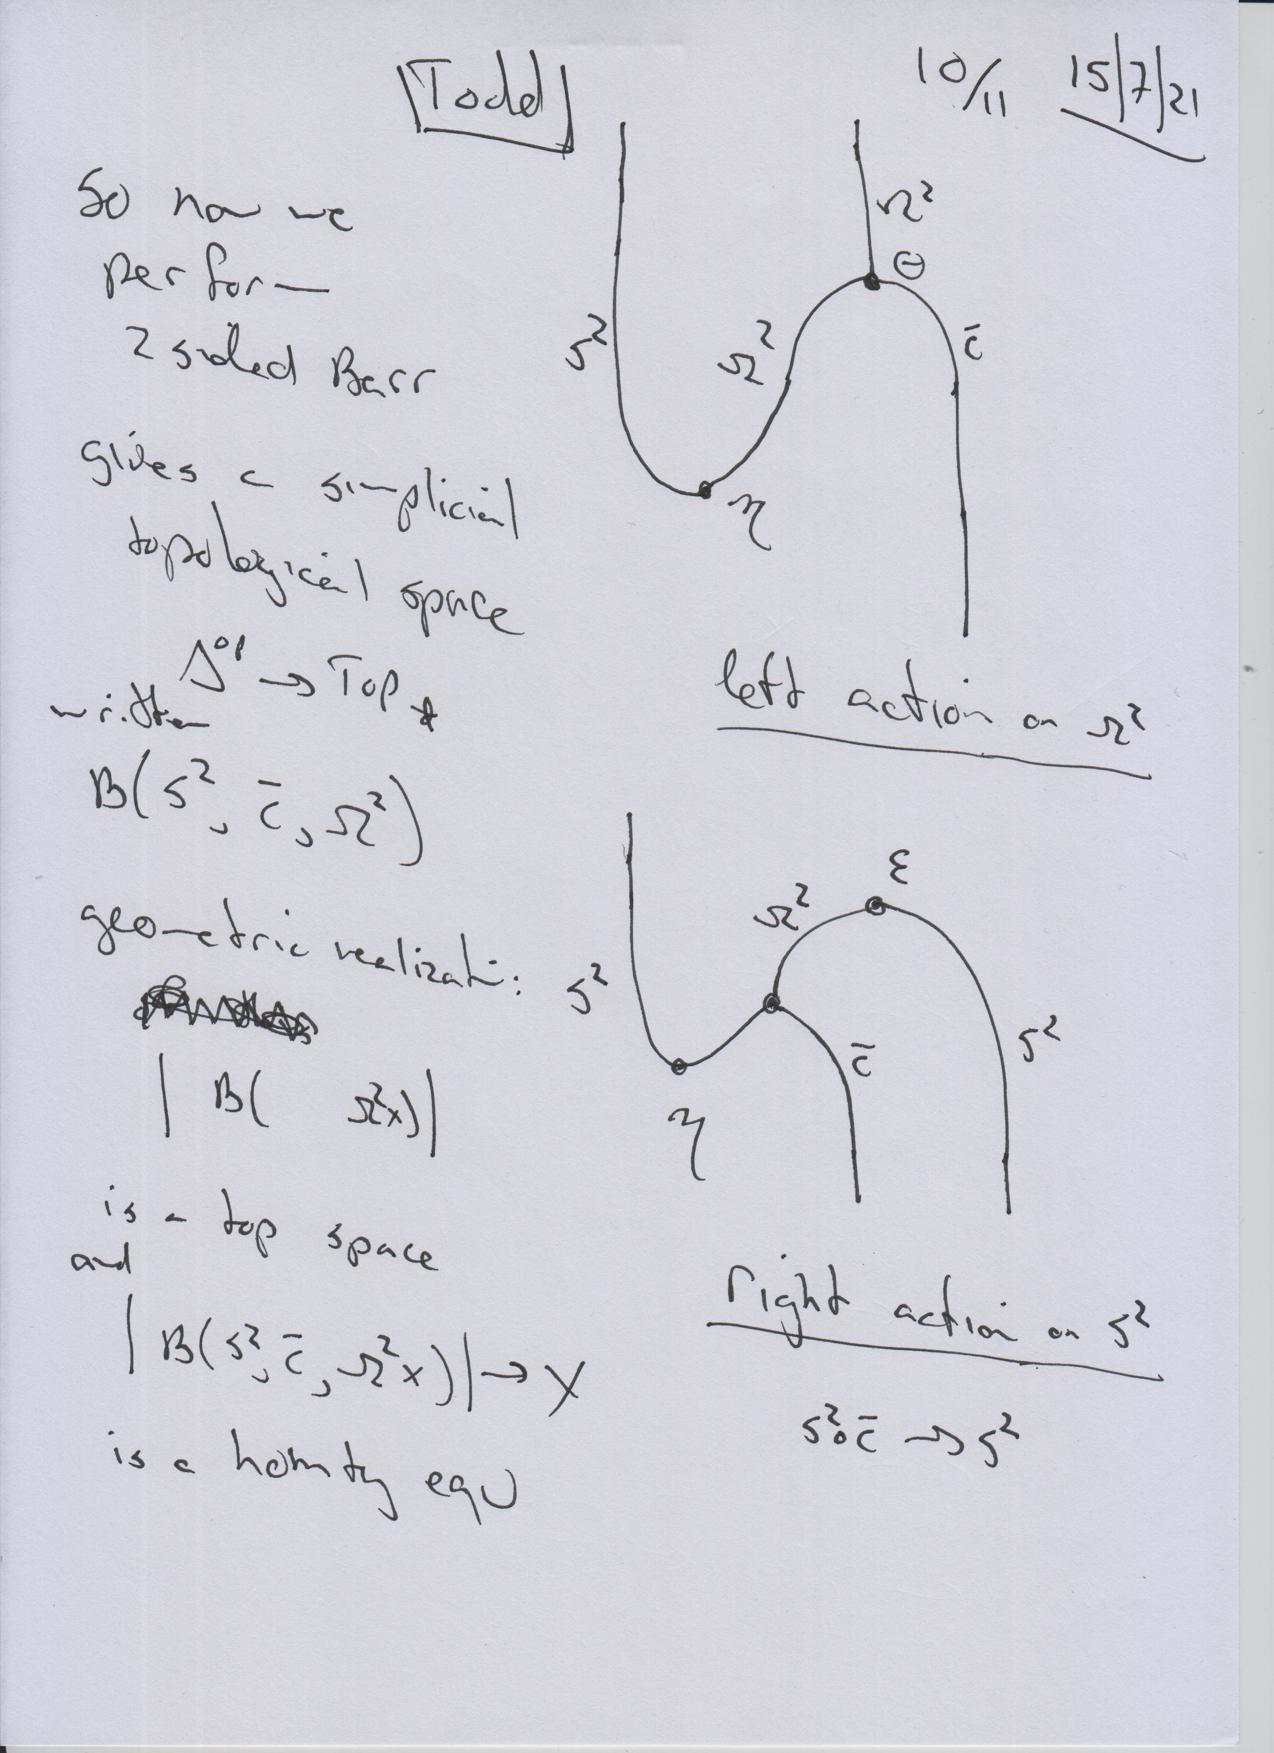 Todd
10/11 15/7/21
So now we
perform
2 sided Barr
gives a simplicial
topological space
Δ^op → Top*
written
B(S², c̄, Ω²)
geometric realizati:
| B( Ω²X)|
is a top space
and
| B(S², c̄, Ω²X)| → X
is a homty equ
Ω²
θ
S²
Ω²
c̄
η
left action on Ω²
ε
Ω²
S²
c̄
S²
η
right action on S²
S²∘c̄ → S²